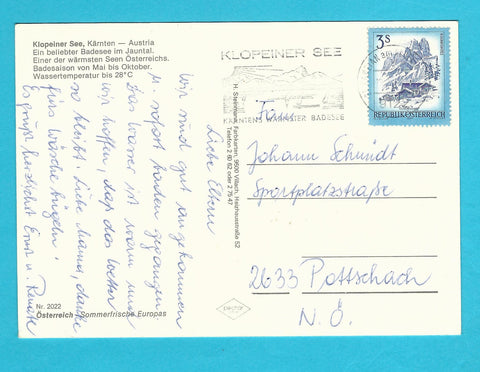 Klopeiner See, Kärnten — Austria
Ein beliebter Badesee im Jauntal.
Einer der wärmsten Seen Österreichs.
Badesaison von Mai bis Oktober.
Wassertemperatur bis 28°C
KLOPEINER SEE
KÄRNTENS WÄRMSTER BADESEE
3s
REPUBLIK ÖSTERREICH
Liebe Eltern
Wir sind gut angekommen
sofort baden gegangen.
Das Wasser ist warm und
wir hoffen, daß das Wetter
so bleibt. Liebe Mama, danke
fürs Wäsche bügeln!
Es grüßt herzlichst Ernst u. Renate
H. Steinmann, Farbkarten, 9500 Villach,
Telefon
Familie
Johann Schmidt
Sportplatzstraße
2633 Pottschach
N.Ö.
Nr. 2022
Österreich - Sommerfrische Europas